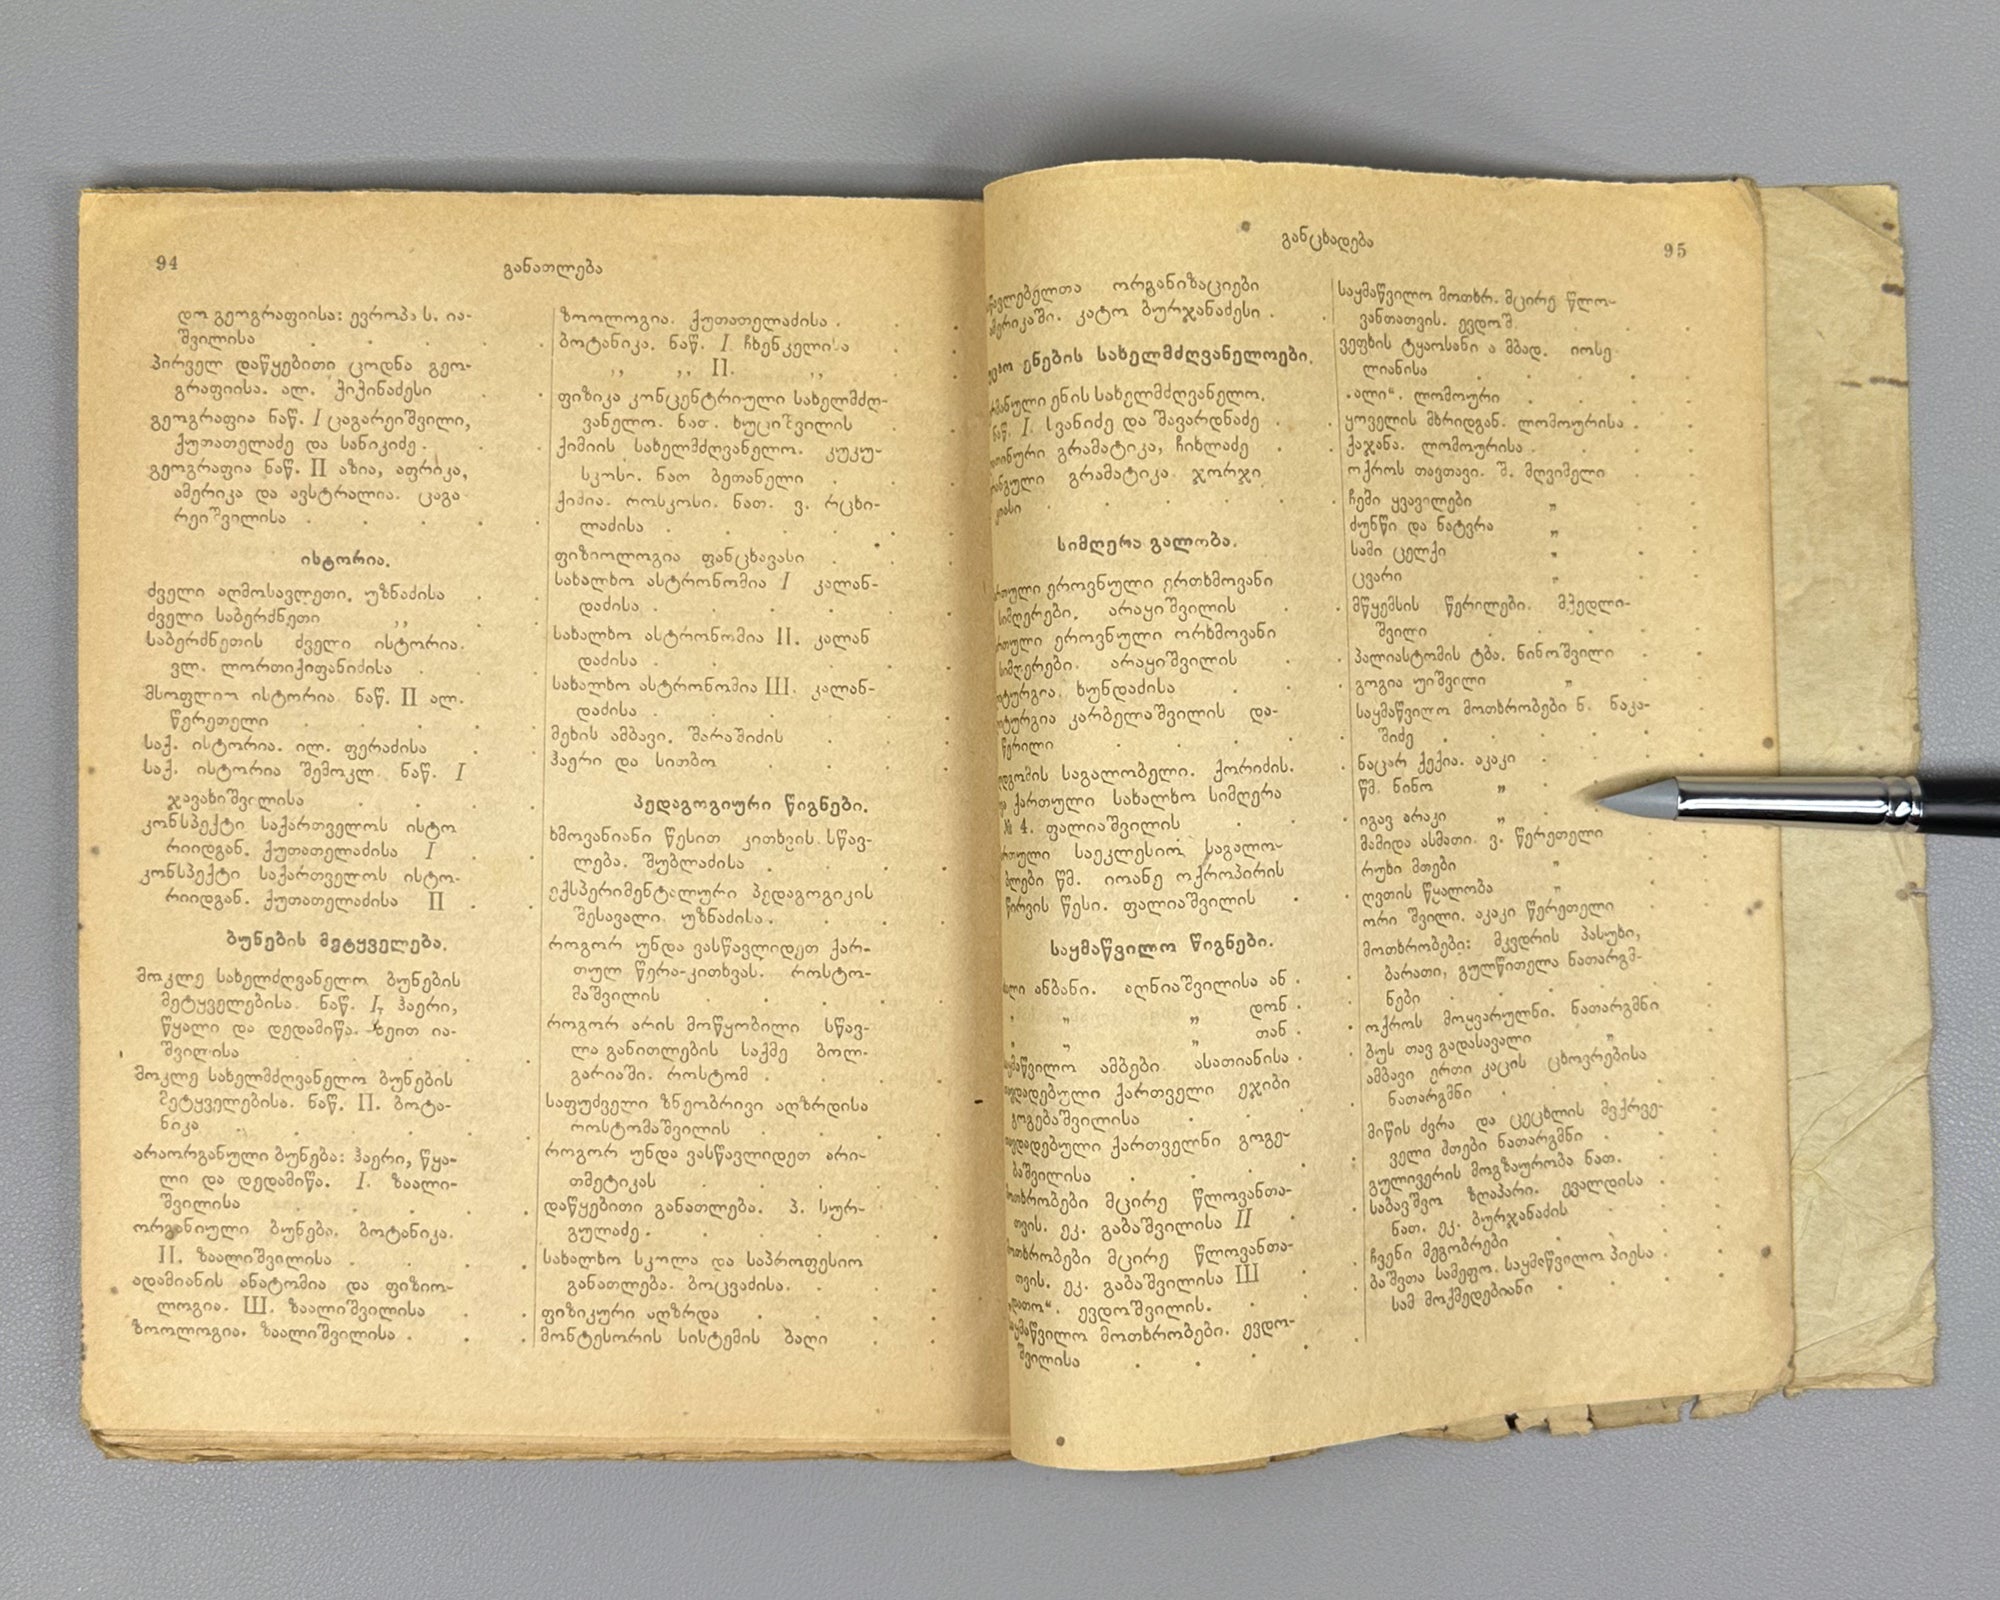 94
განათლება
დო გეოგრაფიისა: ევროპა ს. ია-
შვილისა
პირველ დაწყებითი ცოდნა გეო-
გრაფიისა. ალ. ქიქინაძესი
გეოგრაფია ნაწ. I ცაგარეიშვილი,
ქუთათელაძე და სანიკიძე.
გეოგრაფია ნაწ. II აზია, აფრიკა,
ამერიკა და ავსტრალია. ცაგა
რეიშვილისა
ისტორია.
ძველი აღმოსავლეთი. უზნაძისა
ძველი საბერძნეთი ,,
საბერძნეთის ძველი ისტორია.
ვლ. ლორთიქიფანიძისა
მსოფლიო ისტორია ნაწ. II ალ.
წერეთელი
საქ. ისტორია. ილ. ფერაძისა
საქ. ისტორია შემოკლ. ნაწ. I
ჯავახიშვილისა
კონსპექტი საქართველოს ისტო
რიიდგან. ქუთათელაძისა I
კონსპექტი საქართველოს ისტო-
რიიდგან. ქუთათელაძისა II
ბუნების მეტყველება.
მოკლე სახელძღვანელო ბუნების
მეტყველებისა. ნაწ. I, ჰაერი,
წყალი და დედამიწა. ია-
შვილისა
მოკლე სახელმძღვანელო ბუნების
მეტყველებისა. ნაწ. II. ბოტა-
ნიკა
არაორგანული ბუნება: ჰაერი, წყა-
ლი და დედამიწა. I. ზაალი-
შვილისა
ორგანიული ბუნება. ბოტანიკა.
II. ზაალიშვილისა
ადამიანის ანატომია და ფიზიო-
ლოგია. III. ზაალიშვილისა
ზოოლოგია. ზაალიშვილისა
ზოოლოგია. ქუთათელაძისა
ბოტანიკა. ნაწ. I ჩხენკელისა
,, ,, II. ,,
ფიზიკა კონცენტრიული სახელმძღ-
ვანელო. ნათ. ხუციშვილის
ქიმიის სახელმძღვანელო. კუკუ-
სკოსი. ნათ ბეთანელი
ქიმია. როსკოსი. ნათ. ვ. რცხი-
ლაძისა
ფიზიოლოგია ფანცხავასი
სახალხო ასტრონომია I კალან-
დაძისა
სახალხო ასტრონომია II. კალან
დაძისა
სახალხო ასტრონომია III. კალან-
დაძისა
მეხის ამბავი. შარაშიძის
ჰაერი და სითბო
პედაგოგიური წიგნები.
ხმოვანიანი წესით კითხვის სწავ-
ლება. შუბლაძისა
ექსპერიმენტალური პედაგოგიკის
შესავალი. უზნაძისა
როგორ უნდა ვასწავლიდეთ ქარ-
თულ წერა-კითხვას. როსტო-
მაშვილის
როგორ არის მოწყობილი სწავ-
ლა განითლების საქმე ბოლ-
გარიაში. როსტომ
საფუძველი ზნეობრივი აღზრდისა
როსტომაშვილის
როგორ უნდა ვასწავლიდეთ არი-
თმეტიკას
დაწყებითი განათლება. პ. სურ-
გულაძე
სახალხო სკოლა და საპროფესიო
განათლება. ბოცვაძისა.
ფიზიკური აღზრდა
მონტესორის სისტემის ბაღი
განცხადება
95
ორგანიზაციები
კატო ბურჯანაძესი
ენების სახელმძღვანელოები.
ენის სახელმძღვანელო.
ნაწ. I. სვანიძე და შავარდნაძე
გრამატიკა, ჩიხლაძე
გრამატიკა ჯორჯი
სიმღერა გალობა.
ეროვნული ერთხმოვანი
სიმღერები. არაყიშვილის
ეროვნული ორხმოვანი
სიმღერები. არაყიშვილის
ხუნდაძისა
კარბელაშვილის და-
წერილი
საგალობელი. ქორიძის.
ქართული სახალხო სიმღერა
№ 4. ფალიაშვილის
საეკლესიო საგალო-
ბლები წმ. იოანე ოქროპირის
წირვის წესი. ფალიაშვილის
საყმაწვილო წიგნები.
ანბანი. აღნიაშვილისა ან
„ „ დონ
„ „ თან
ამბები ასათიანისა
ქართველი ეჯიბი
გოგებაშვილისა
ქართველნი გოგე-
ბაშვილისა
მოთხრობები მცირე წლოვანთა-
თვის. ეკ. გაბაშვილისა II
მოთხრობები მცირე წლოვანთა-
თვის. ეკ. გაბაშვილისა III
ევდოშვილის.
მოთხრობები. ევდო-
შვილისა
საყმაწვილო მოთხრ. მცირე წლო-
ვანთათვის. ევდოშ.
ვეფხის ტყაოსანი ა მბად. იოსე
ლიანისა
„ალი“. ლომოური
ყოველის მხრიდგან. ლომოურისა
ქაჯანა. ლომოურისა
ოქროს თავთავი. შ. მღვიმელი
ჩემი ყვავილები „
ძუნწი და ნატვრა „
სამი ცელქი „
ცვარი „
მწყემსის წერილები. მჭედლი-
შვილი
პალიასტომის ტბა. ნინოშვილი
გოგია უიშვილი „
საყმაწვილო მოთხრობები ნ. ნაკა-
შიძე
ნაცარ ქექია. აკაკი
წმ. ნინო „
იგავ არაკი „
მამიდა ასმათი. ვ. წერეთელი
რუხი მთები „
ღვთის წყალობა „
ორი შვილი. აკაკი წერეთელი
მოთხრობები: მკვდრის პასუხი,
ბარათი, გულწითელა ნათარგმ-
ნები
ოქროს მოყვარულნი. ნათარგმნი
ბუს თავ გადასავალი „
ამბავი ერთი კაცის ცხოვრებისა
ნათარგმნი
მიწის ძვრა და ცეცხლის მფქრვე-
ველი მთები ნათარგმნი
გულივერის მოგზაურობა ნათ.
საბავშვო ზღაპარი. ევალდისა
ნათ. ეკ. ბურჯანაძის
ჩვენი მეგობრები
ბაშვთა სამეფო. საყმაწვილო პიესა
სამ მოქმედებიანი